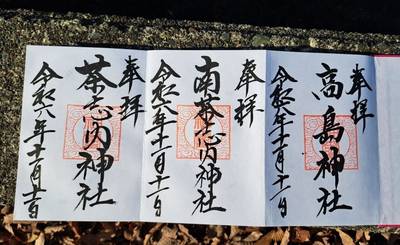 奉拝
高島神社
令和六年十一月十一日
奉拝
南茶志内神社
令和六年十一月十一日
奉拝
茶志内神社
令和六年十一月十一日